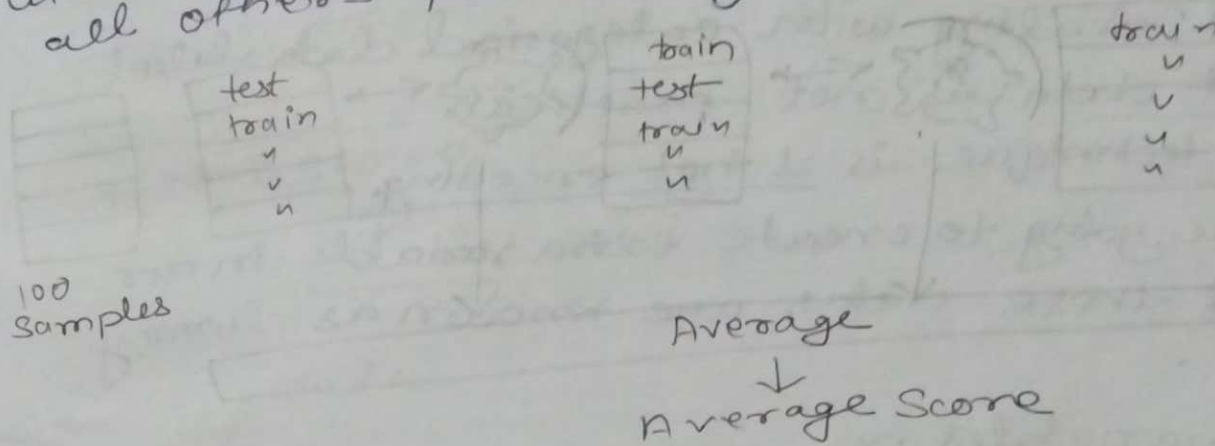 all
test
train
"
"
"
train
test
train
"
"
train
"
"
"
"
100
Samples
Average
↓
Average Score